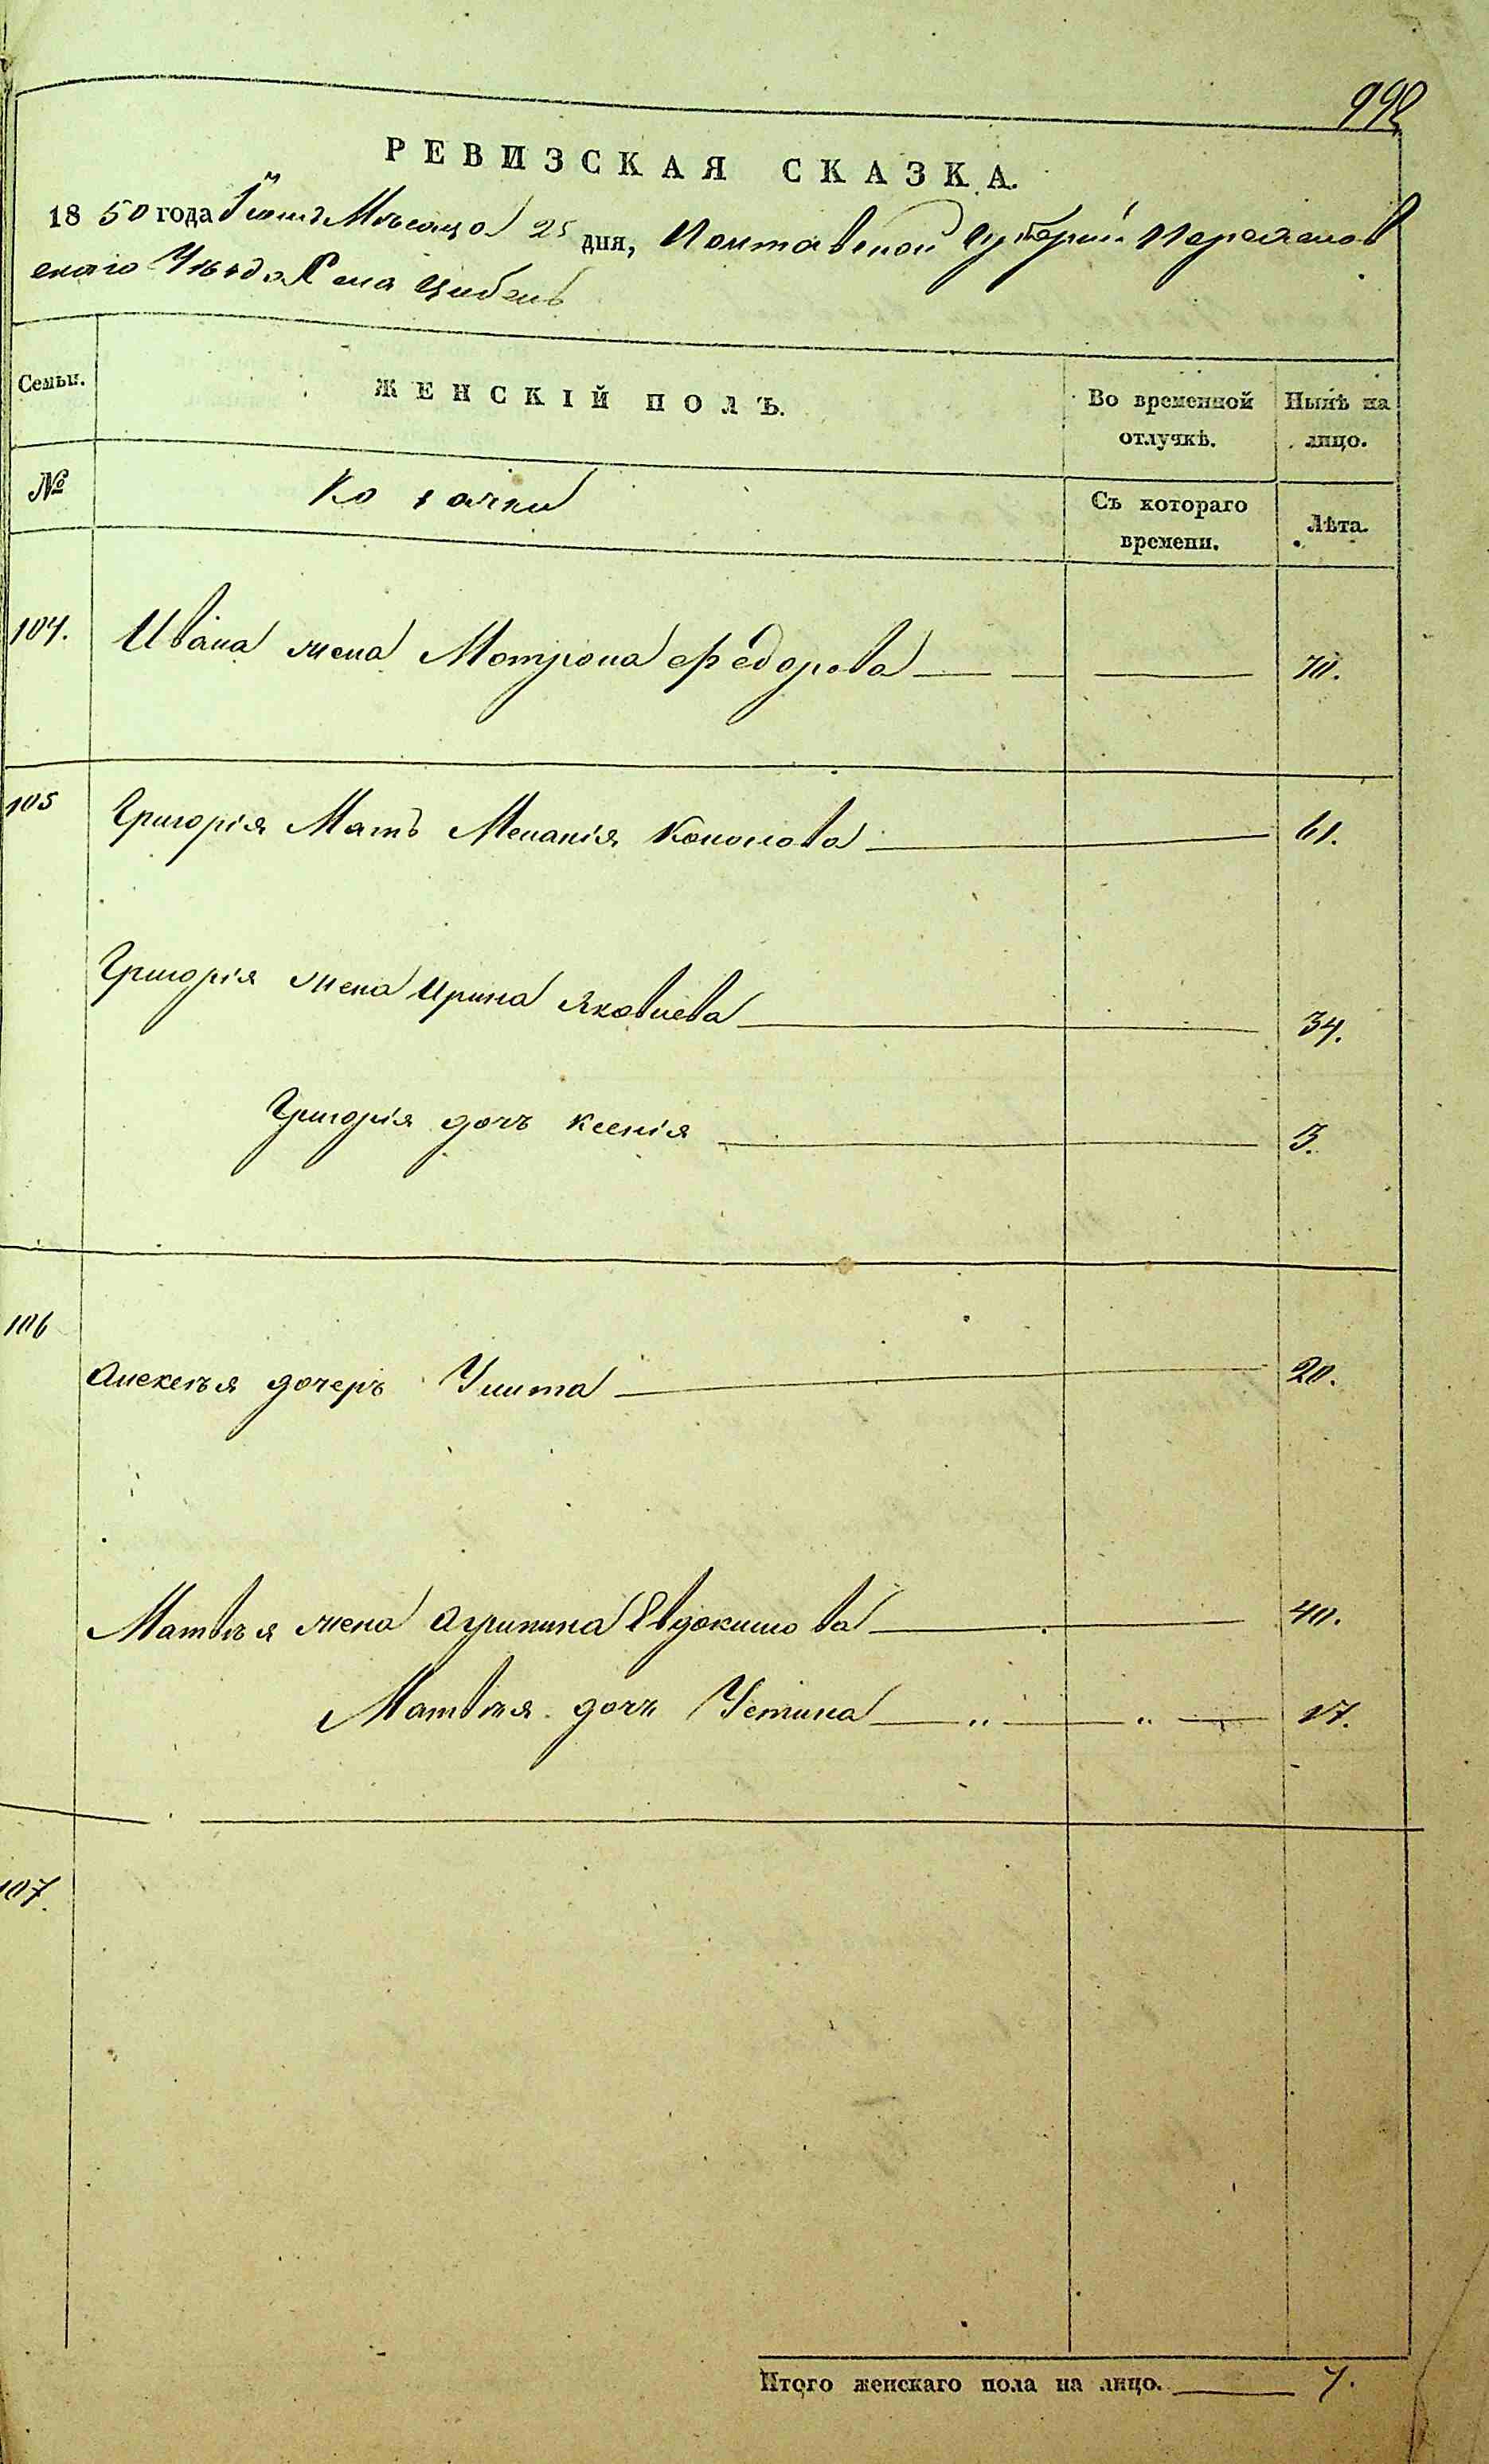 992
РЕВИЗСКАЯ СКАЗКА.
1850 года Іюня Мѣсяца 25 дня, Полтавской Губерніи Переяслов
скаго Уѣзда Села Цибель
Семьи. ЖЕНСКІЙ ПОЛЪ. Во временной отлучкѣ. Нынѣ на лицо.
№ Козачки Съ котораго времени. Лѣта.
104. Ивана жена Мотрона Федорова 70.
105 Григорія Мать Меланія Кононова 61.
Григорія жена Ирина Яковлева 34.
Григорія дочь Ксенія 3.
106 Алексѣя дочерь Улита 20.
Матвѣя жена Агрипина Евдокимова 40.
Матвѣя дочь Устина 17.
107.
Итого женскаго пола на лицо. 7.